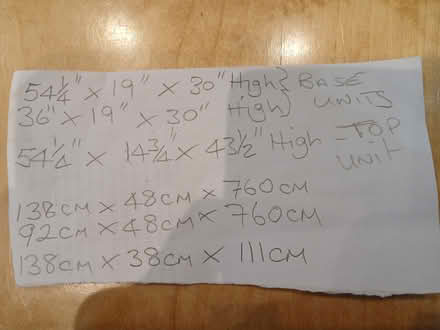 54 1/4" x 19" x 30" High } BASE
36" x 19" x 30" High } UNITS
54 1/4" x 14 3/4" x 43 1/2" High - TOP
UNIT
138cm x 48cm x 760cm
92cm x 48cm x 760cm
138cm x 38cm x 111cm